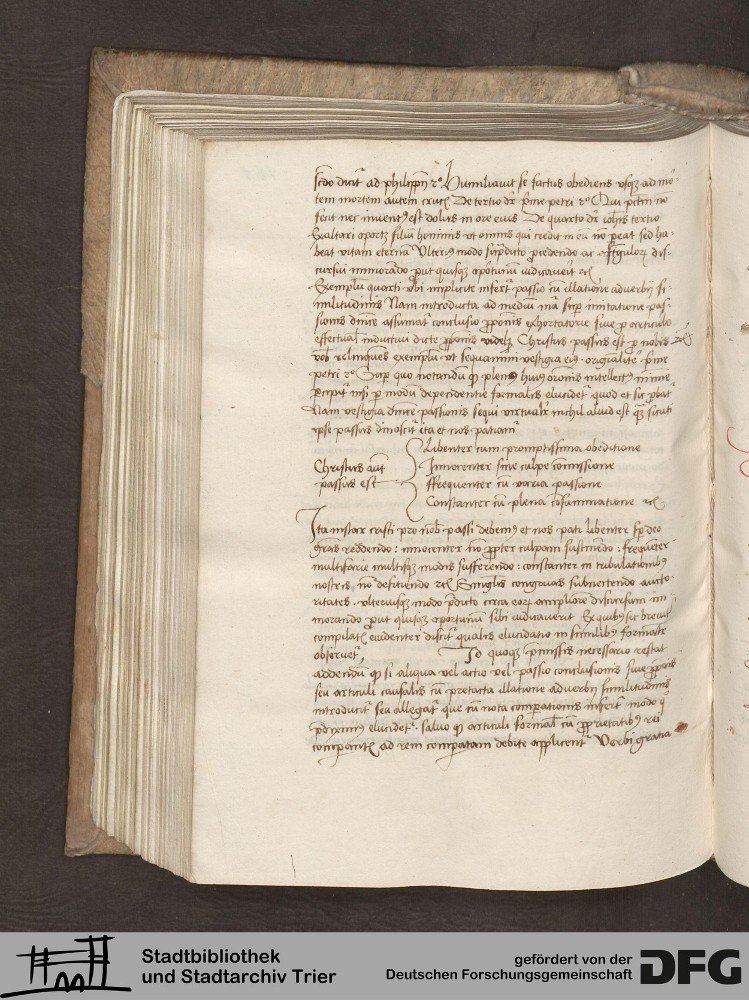 scdo dicit ad philippen 2° Humiliauit se factus obediens vsqz ad mor
tem mortem autem crucis De tertio dr prime petri 2° Qui pctm no
fecit nec inuentus est dolus in ore eius De quarto dr iohis tertio
Exaltari oportz filiu hominis vt omnis qui credit in eu no peat sed ha
beat vitam eterna Vlterius modo procedendo ac dis
cursui immorado put quisqz oportunu iudicauerit
Exemplu quarti vbi implicite infert passio cu illatione aduerbij si
militudinis Nam introducta ad mediu ma sup imitatione pas
sionis dnice assumat conclusio pponis exhortatorie siue p articulo
effectual inductiui dicte pponis videlz Christus passus est p nobis
vob relinques exemplu vt sequamini vestigia eius originalite prime
petri 2° Sup quo notandu q plene huius oronis intellectus minime
pcipit nisi p modu dependentie formalis elucidet quod et sic pbat
Nam vestigia dnice passionis sequi virtualr nichil aliud est qz sicuti
ipse passus dinoscit ita et nos patiam
Libenter cum promptissima obeditione
Christus aut Innocenter sine culpe comissione
passus est ffrequenter cu varia passione
Constanter cu plena cosummatione
Ita instar cristi pro nob passi debemus et nos pati libenter sp deo
gras reddendo : innocenter no propter culpam sustinedo : frequeter
multifarie multisqz modis sufferendo : constanter in tribulationibus
nostris no deficiendo Singulis congruas subuertendo aucto
ritates . vlteriusqz modo pducto circa eorz ampliore discursum im
morando put quisqz oportunu sibi iudicauerit Ex quibus sic breuit
compilatis euidenter discit qualis elucidatio in similibus formalr
obseruet Id quoqz pmissis necessario restat
addendu q si aliqua vel actio vel passio conclusionis siue pponis
seu articuli causalis cu pretacta illatione aduerbij similitudinis
introducit seu allegat que cu nota compationis infert modo
pdiximus elucidet . saluo q articuli formal cu pprietatibus rei
comparantis ad rem compatam debite applicent Verbi gratia
Stadtbibliothek
und Stadtarchiv Trier
gefördert von der
Deutschen Forschungsgemeinschaft
DFG